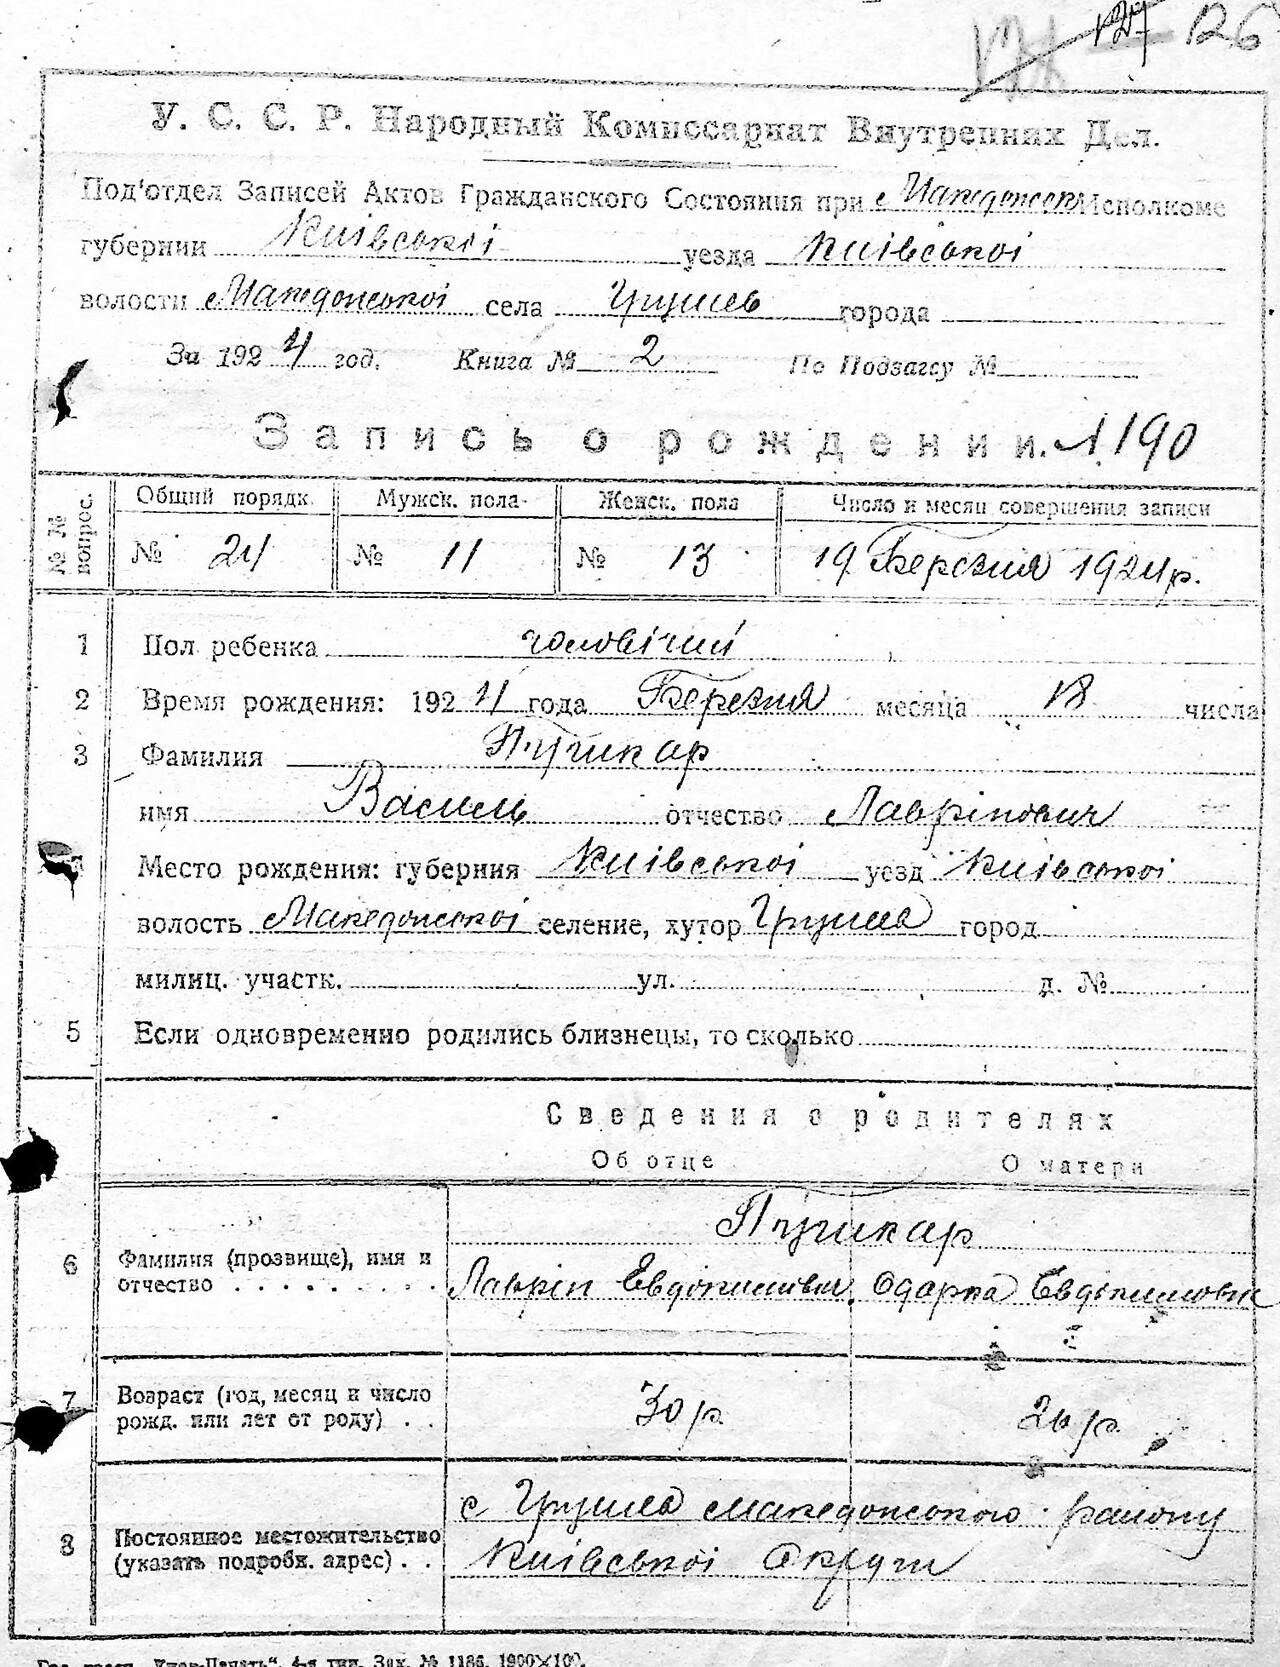 127 126
У. С. С. Р. Народный Комиссариат Внутренних Дел.
Под'отдел Записей Актов Гражданского Состояния при Македонск Исполкоме
губернии Київської уезда Київської
волости Македонської села Грушев города
За 1924 год. Книга № 2 По Подзагсу №
Запись о рождении. № 190
№ № вопрос. Общий порядк. Мужск. пола Женск. пола Число и месяц совершения записи
№ 24 № 11 № 13 19 Березня 1924 р.
1 Пол ребенка чоловічий
2 Время рождения: 1924 года Березня месяца 18 числа
3 Фамилия Пушкар
имя Василь отчество Лаврінович
Место рождения: губерния Київської уезд Київської
волость Македонської селение, хутор Грушев город
милиц. участк. ул. д. №
5 Если одновременно родились близнецы, то сколько
Сведения о родителях
Об отце О матери
Пушкар
6 Фамилия (прозвище), имя и
отчество Лаврін Евдокимович. Одарка Евдокимовна
7 Возраст (год, месяц и число
рожд. или лет от роду) 30 р. 26 р.
с Грушев Македонського району
8 Постоянное местожительство
(указать подробн. адрес) Київської Округи
"Киев-Печать", 4-я тип. Зак. № 1186. 1900×100.